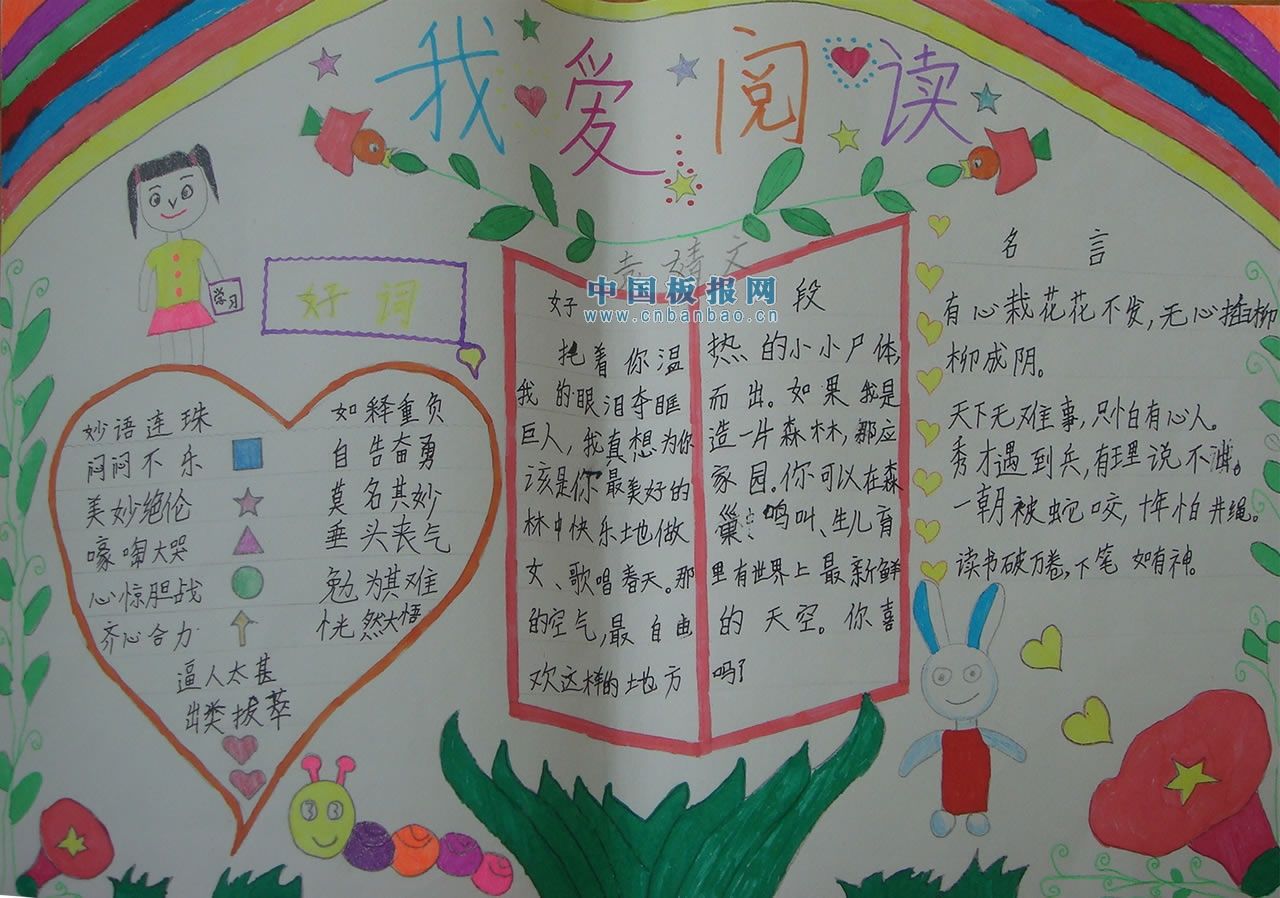 我爱阅读
学习
好词
妙语连珠
闷闷不乐
美妙绝伦
嚎啕大哭
心惊胆战
齐心合力
如释重负
自告奋勇
莫名其妙
垂头丧气
勉为其难
恍然大悟
逼人太甚
出类拔萃
袁婧文
中国板报网
www.cnbanbao.cn
好段
抱着你温热的小小尸体,
我的眼泪夺眶而出。如果我是
巨人,我真想为你造一片森林,那应
该是你最美好的家园。你可以在森
林中快乐地做巢、鸣叫、生儿育
女、歌唱春天。那里有世界上最新鲜
的空气,最自由的天空。你喜
欢这样的地方吗?
名言
有心栽花花不发,无心插柳
柳成阴。
天下无难事,只怕有心人。
秀才遇到兵,有理说不清。
一朝被蛇咬,十年怕井绳。
读书破万卷,下笔如有神。